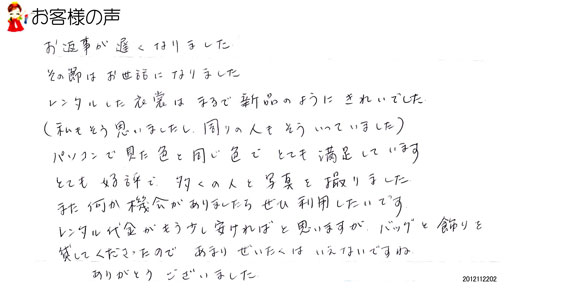 お客様の声
お返事が遅くなりました
その節はお世話になりました
レンタルした衣裳はまるで新品のようにきれいでした.
(私もそう思いましたし、周りの人もそういっていました)
パソコンで見た色と同じ色でとても満足しています
とても好評で、多くの人と写真を撮りました
また何か機会がありましたらぜひ利用したいです
レンタル代金がもう少し安ければと思いますが、バッグと飾りを
貸してくださったので あまりぜいたくはいえないですね
ありがとうございました.
2012112202